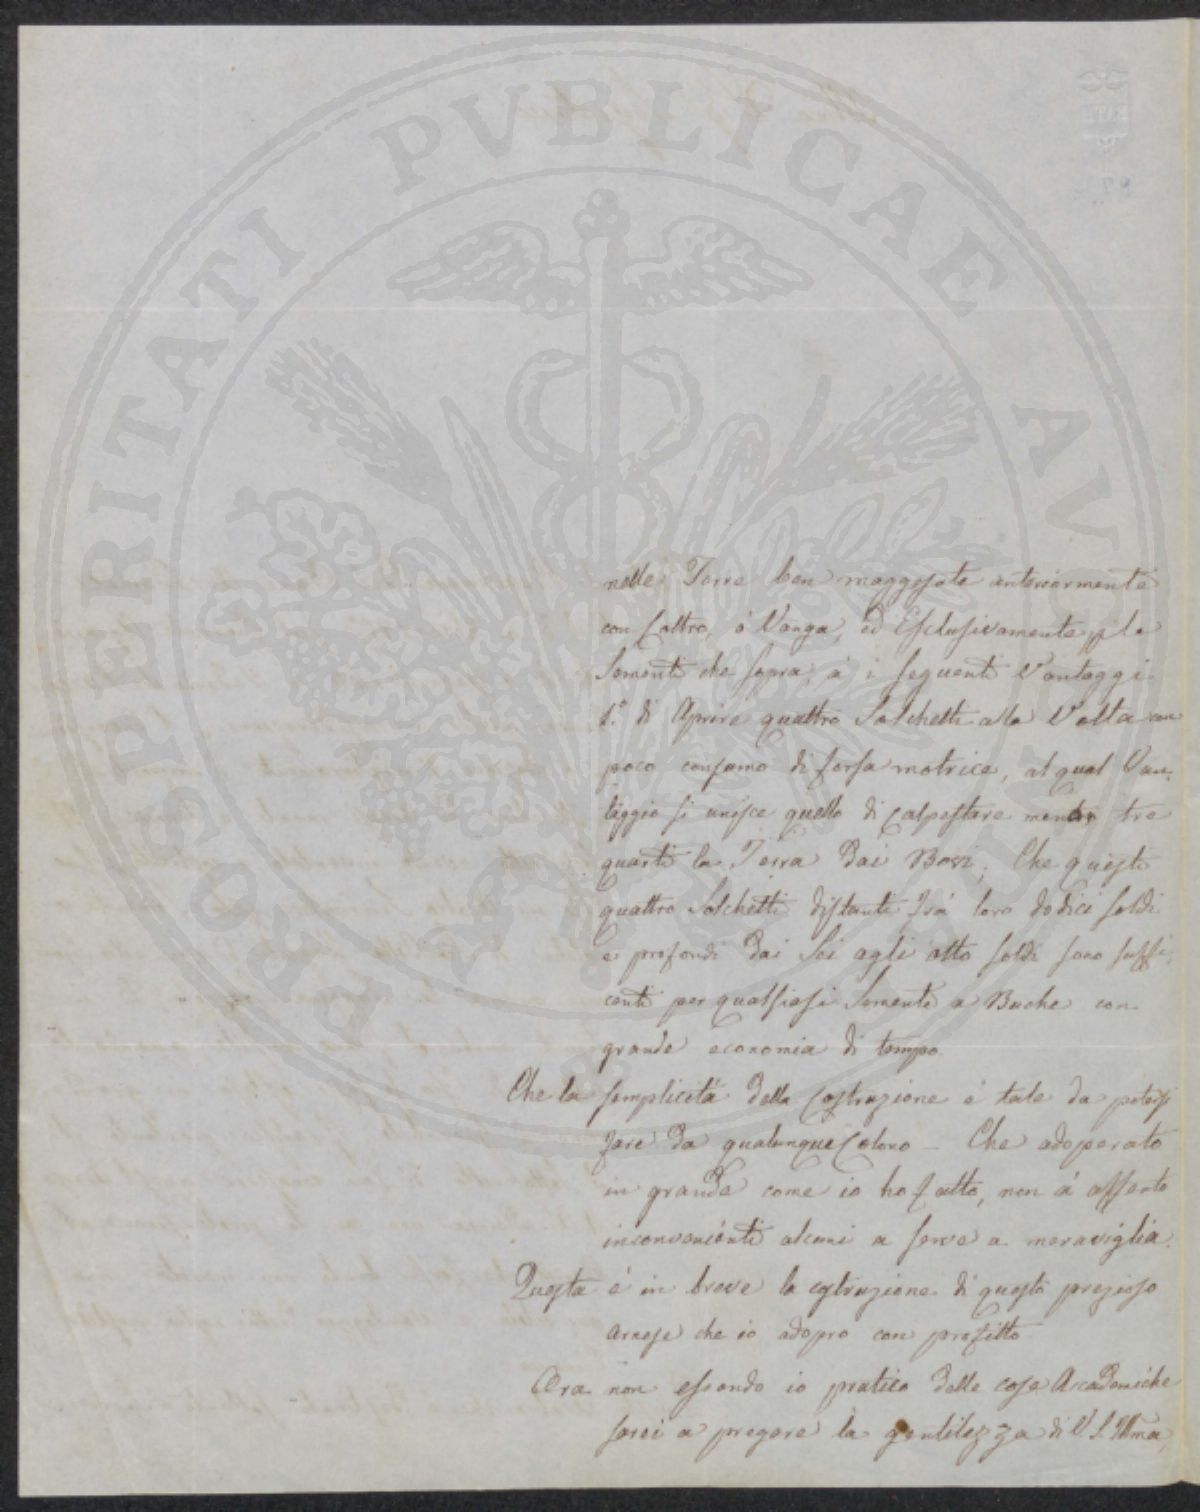 PROSPERITATI PVBLICAE AVGENDAE
nelle Terre ben maggesate anteriormente
con Coltro, o Vanga, ed Esclusivamente p le
Sementi che sopra, à i seguenti Vantaggi
1.° di Aprire quattro Solchetti alla Volta con
poco consumo di forsa motrice, al qual Van-
taggio si unisce quello di calpestare meno tre
quarti la Terra dai Bovi; Che questi
quattro Solchetti distanti frà loro dodici soldi
e profondi dai Sei agli otto soldi sono suffi-
centi per qualsiasi Sementa a Buche con
grande economia di tempo
Che la semplicità della Costruzione è tale da potersi
fare da qualunque Colono - Che adoperato
in grande come io ho fatto, non à offerto
inconvenienti alcuni e serve a meraviglia.
Questa è in breve la costruzione di questo prezioso
Arnese che io adopro con profitto
Ora non essendo io pratico delle cose Accademiche
sarei a pregare la gentilezza di V. S. Illma,